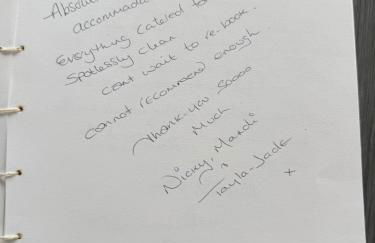 Absolu
accommoda
Everything catered to
Spotlessly clean
cant wait to re-book.
cannot recommend enough
Thank-you soooo
Much
Nicky, Mandi
&
Tayla-Jade
x